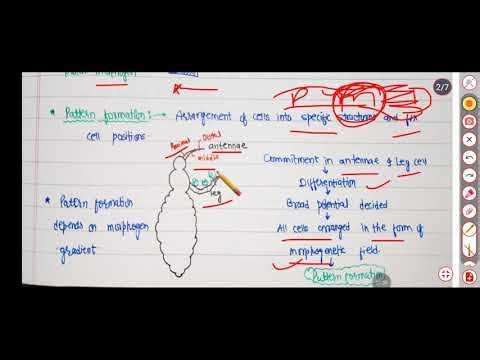 morphogen
* Pattern formation :→ Arrangement of cells into specific structures and fix
cell positions.
Proximal
Distal
middle
antennae
leg
* Pattern formation
depends on morphogen
gradient
Commitment in antennae & Leg cell
Differentiation
Broad potential decided
All cells arranged in the form of
morphogenetic field.
Pattern formation
P
2/7